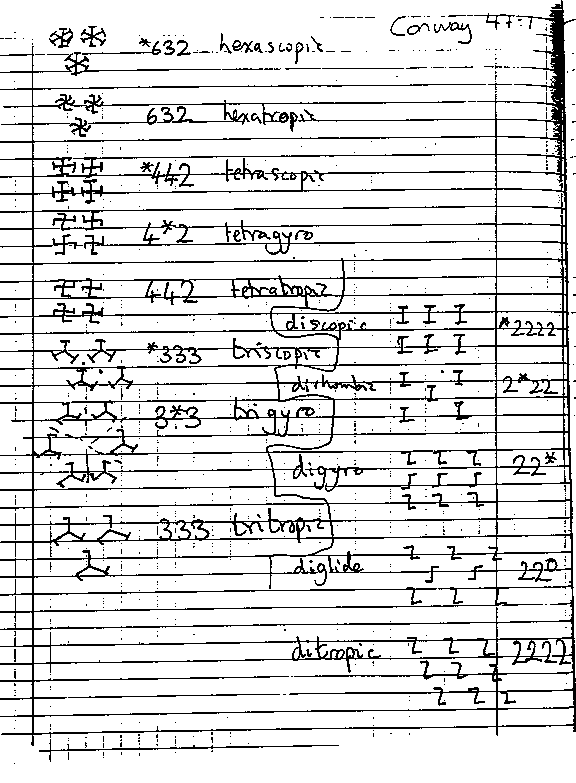 Conway 47:1
*632 hexascopic
632 hexatropic
*442 tetrascopic
4*2 tetragyro
442 tetratropic
discopic *2222
*333 triscopic
dirhombic 2*22
3*3 trigyro
digyro 22*
333 tritropic
diglide 220
ditropic 2222